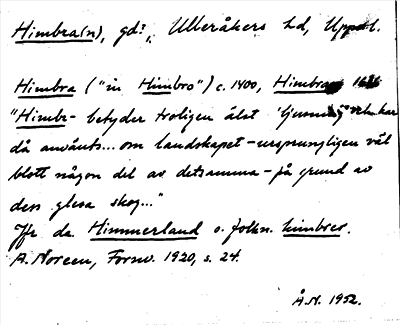 Himbra(n), gd?, Ulleråkers hd, Uppsl.
Himbra ("in Himbro") c. 1400, Himbra
"Himbr- betyder troligen älst 'ljusning' och har
då använts... om landskapet - ursprungligen väl
blott någon del av detsamma - på grund av
dess glesa skog..."
Jfr da. Himmerland o. folkn. kimbrer.
A. Noreen, Fornv. 1920, s. 24.
Å.N. 1952.